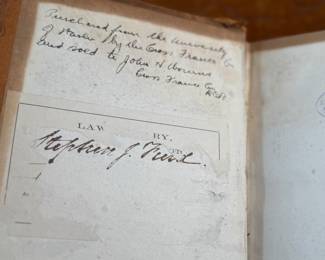 Purchased from the University
of by the Cross France Co
and sold to John H
Cross France Co
LAW
BY.
Stephen J. Field.